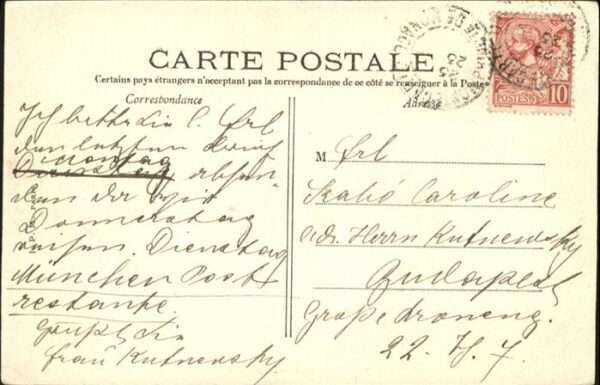 CARTE POSTALE
Certains pays étrangers n'acceptant pas la correspondance de ce côté se renseigner à la Poste
Correspondance
Adresse
POSTES
10
Ich bitte Sie l. Frl
den letzten Brief
Montag
Dienstag
den der wir
Donnerstag
Dienstag
München Post
restante
grüßt Sie
Frau Kutnewsky
M Frl
Szabó Caroline
adr. Herrn Kutnewsky
Budapest
22. II. 7.